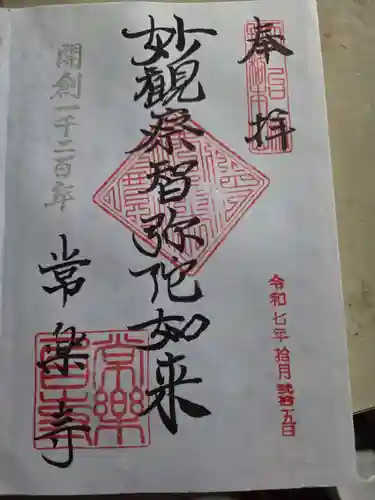 奉拝
令和七年拾月弐拾五日
妙観察智弥陀如来
開創一千二百年
常楽寺